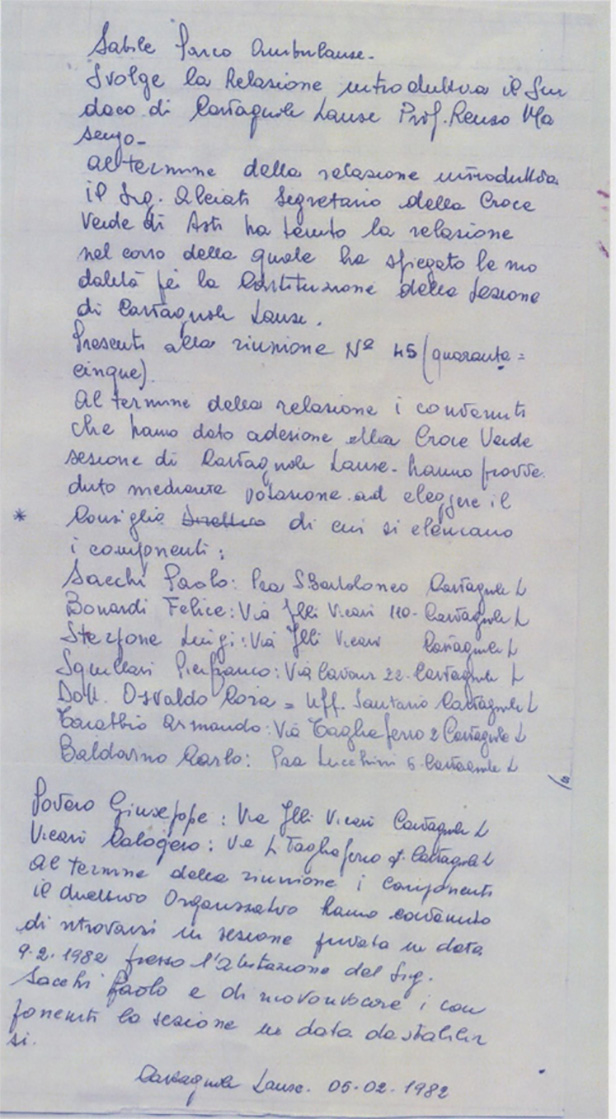 sabile Parco Ambulanze.
Svolge la Relazione introduttiva il Sin
daco di Castagnole Lanze Prof. Renzo Ma
sengo-
Al termine della relazione introduttiva
il Sig. Alciati Segretario della Croce
Verde di Asti ha tenuto la relazione
nel corso della quale ha spiegato le mo
dalità per la Costituzione della Sezione
di Castagnole Lanze.
Presenti alla riunione Nº 45 (quaranta=
cinque).
Al termine della relazione i convenuti
che hanno dato adesione alla Croce Verde
sezione di Castagnole Lanze. hanno provve
duto mediante votazione ad eleggere il
* Consiglio Direttivo di cui si elencano
i componenti:
Sacchi Paolo: Pza S Bartolomeo Castagnole L
Bonardi Felice: Via Flli Vicari 110- Castagnole L
Luigi: Via Flli Vicari Castagnole L
Squillari Pierfranco: Via Cavour 22- Castagnole L
Dott. Osvaldo = Uff. Sanitario Castagnole L
Armando: Via Tagliaferro 2 Castagnole L
Carlo: Pza 5- Castagnole L
Povero Giuseppe: Via Flli Vicari Castagnole L
Vicari Calogero: Via L Tagliaferro Castagnole L
Al termine della riunione i componenti
il direttivo Organizzativo hanno convenuto
di ritrovarsi in sezione privata in data
9.2.1982 presso l'abitazione del Sig.
Sacchi Paolo e di riconvocare i com
ponenti la sezione in data da stabilir
si.
Castagnole Lanze. 05-02-1982